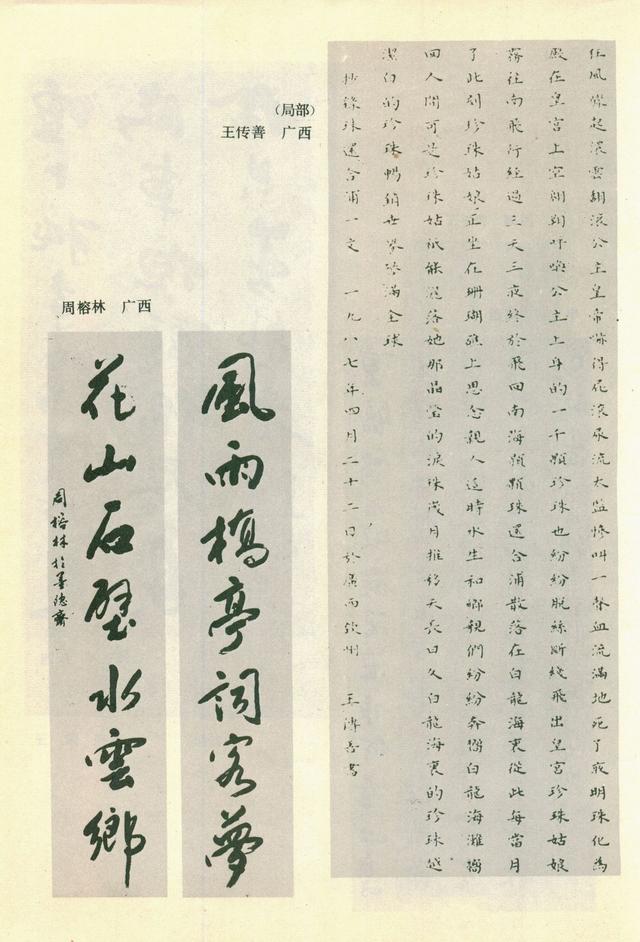 風驟起滚雲翻滚公主皇帝嚇得屁滚尿流太監慘叫一聲血流滿地死了夜明珠化為
殿在皇宮上空翱翔呼喚公主上身的一千顆珍珠也紛紛脫絲斷綫飛出皇宮珍珠姑娘
霧往南飛行經過三天三夜終於飛回南海顆顆珠還合浦散落在白龍海裏從此每當月
了此刻珍珠姑娘正坐在珊瑚礁上思念親人這時水生和鄉親們紛紛奔白龍海灘
回人間可是珍珠姑祇能灑落她那晶瑩的淚珠歲月推移天長日久白龍海裏的珍珠越
潔白的珍珠暢銷世界譽滿全球
抄錄珠還合浦一文 一九八七年四月二十二日於廣西欽州 王傳善書
（局部）
王传善 广西
周榕林 广西
風雨橋亭詞客夢
花山石壁水雲鄉
周榕林於墨德齋